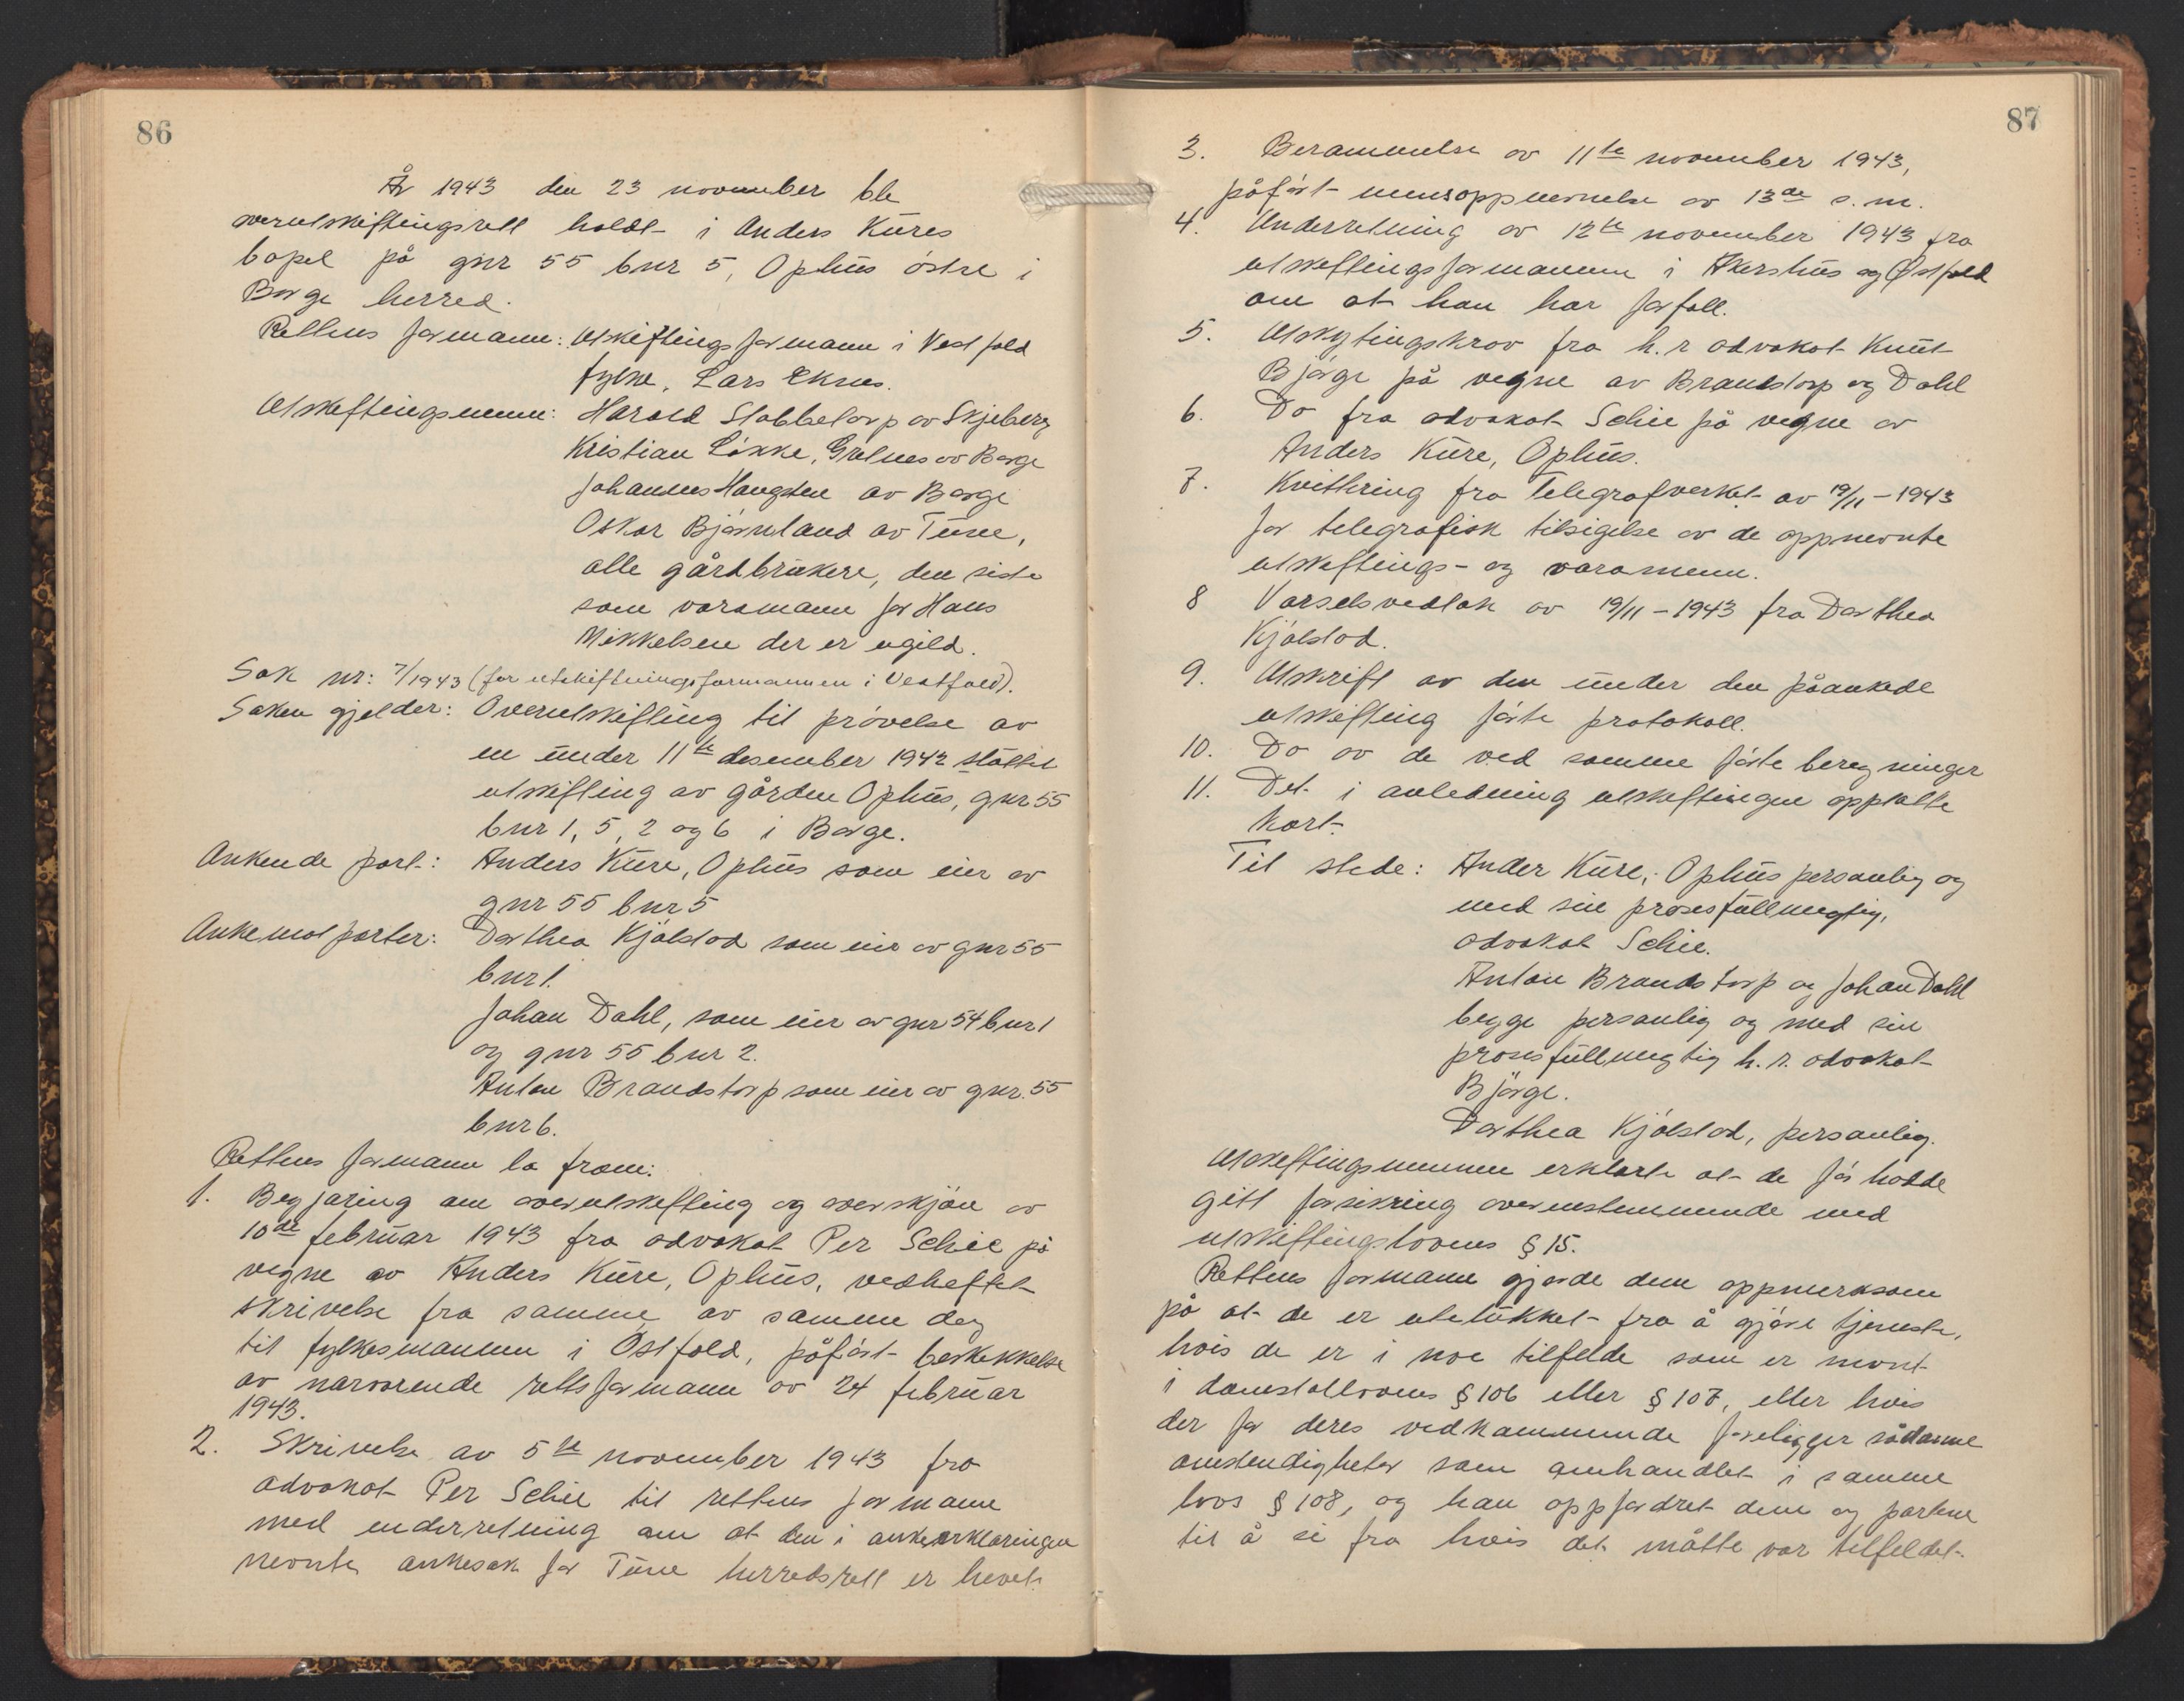 86
År 1943 den 23 november ble
overutskiftingsrett holdt i Anders Kures
bopel på gnr 55 bnr 5, Ophus östre i
Borge herred.
Rettens formann: Utskiftingsformann i Vestfold
fylke, Lars Eknes.
Utskiftingsmenn: Harald Stabbetorp av Skjeberg
Kristian Lökke, Grelnes av Borge
Johannes Haugsten av Borge
Oskar Björnland av Tune,
alle gårdbrukere, den siste
som varamann for Hans
Mikkelsen der er ugild.
Sak nr: 7/1943 (for utskiftningsformannen i Vestfold).
Saken gjelder: Overutskifting til prövelse av
en under 11te desember 1942 sluttet
utskifting av gården Ophus, gnr 55
bnr 1, 5, 2 og 6 i Borge.
Ankende part: Anders Kure, Ophus som eier av
gnr 55 bnr 5
Ankemotparter: Dorthea Kjölstad som eier av gnr 55
bnr 1.
Johan Dahl, som eier av gnr 54 bnr 1
og gnr 55 bnr 2.
Anton Brandstorp som eier av gnr. 55
bnr 6.
Rettens formann la fram:
1. Begjæring om overutskifting og overskjön av
10de februar 1943 fra advokat Per Schie på
vegne av Anders Kure, Ophus, vedheftet
skrivelse fra samme av samme dag
til fylkesmannen i Östfold, påfört beskikkelse
av nærværende rettsformann av 24 februar
1943.
2. Skrivelse av 5te november 1943 fra
advokat Per Schie til rettens formann
med underretning om at den i ankeerklæringen
nevnte ankesak for Tune herredsrett er hevet.
87
3. Berammelse av 11te november 1943,
påfört mennsoppnevnelse av 13de s.m.
4. Underretning av 12te november 1943 fra
utskiftingsformannen i Akershus og Østfold
om at han har forfall.
5. Utskytingskrav fra h.r advokat Knut
Björge på vegne av Brandstorp og Dahl
6. Do fra advokat Schie på vegne av
Anders Kure, Ophus.
7. Kvittering fra Telegrafverket av 19/11-1943
for telegrafisk tilsigelse av de oppnevnte
utskiftings- og varamenn.
8 Varselsvedtak av 19/11-1943 fra Dorthea
Kjölstad.
9. Utskrift av den under den påankede
utskifting förte protokoll.
10. Do av de ved samme förte beregninger
11. Det i anledning utskiftingen opptatte
kart.
Til stede: Ander Kure, Ophus personlig og
med sin prosesfullmegtig,
advokat Schie.
Anton Brandstorp og Johan Dahl
begge personlig og med sin
prosesfullmegtig h.r. advokat
Björge.
Dorthea Kjölstad, personlig.
Utskiftingsmennene erklærte at de för hadde
gitt forsikring overenstemmende med
utskiftingslovens § 15.
Rettens formann gjorde dem oppmerksom
på at de er utelukket fra å gjöre tjeneste,
hvis de er i noe tilfelde som er nevnt
i domstollovens § 106 eller § 107, eller hvis
der for deres vedkommende foreligger sådanne
omstendigheter som omhandlet i samme
lovs § 108, og han oppfordret dem og partene
til å si fra hvis det måtte vær tilfeldet.